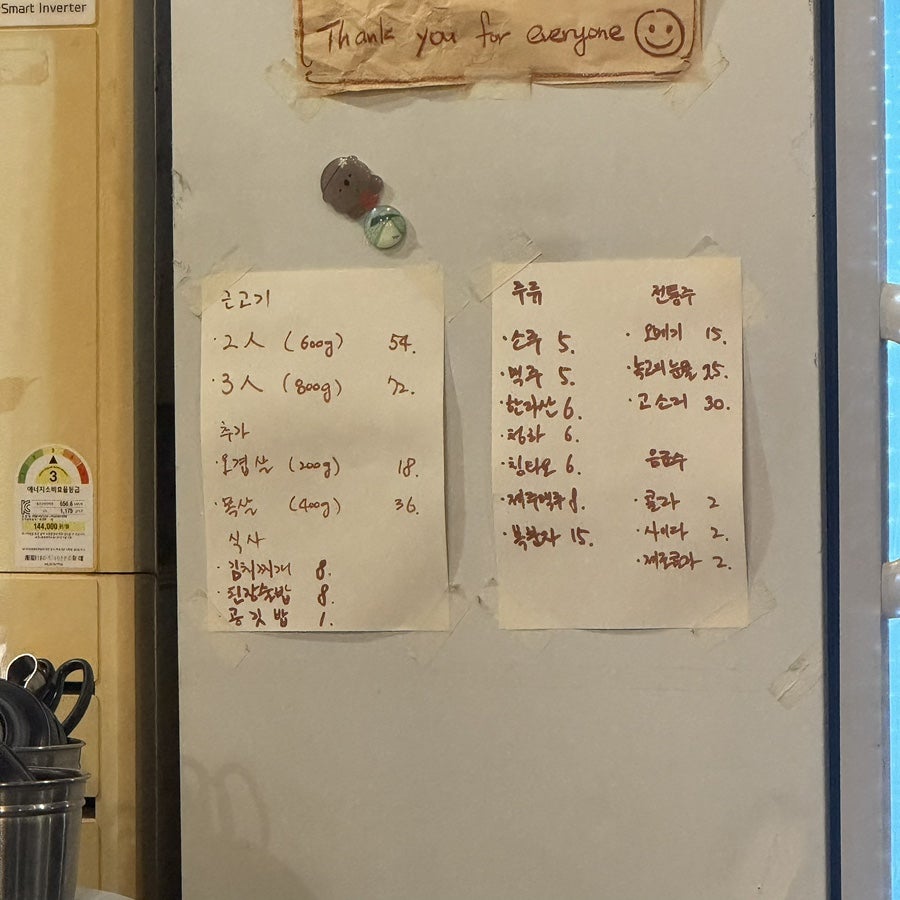 Smart Inverter
Thank you for everyone
근고기
· 2人 (600g) 54.
· 3人 (800g) 72.
추가
· 오겹살 (200g) 18.
· 목살 (400g) 36.
식사
· 김치찌개 8.
· 된장술밥 8.
· 공깃밥 1.
주류
· 소주 5.
· 맥주 5.
· 한라산 6.
· 청하 6.
· 칭타오 6.
· 제주맥주 8.
· 복분자 15.
전통주
· 오메기 15.
· 녹고의 눈물 25.
· 고소리 30.
음료수
· 콜라 2
· 사이다 2.
· 제로콜라 2.
3
에너지소비효율등급
144,000